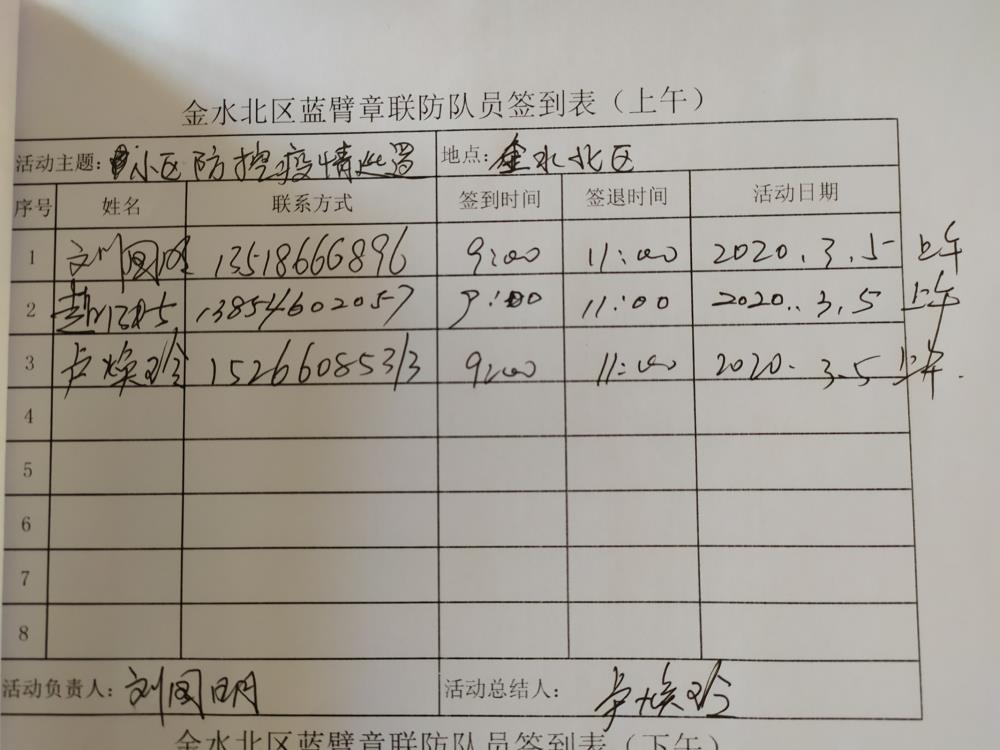 金水北区蓝臂章联防队员签到表（上午）
活动主题: 小区防控疫情处置 地点: 金水北区
序号 姓名 联系方式 签到时间 签退时间 活动日期
1 刘国明 13518666896 9:00 11:00 2020.3.5 上午
2 13854602057 9:00 11:00 2020..3.5 上午
3 卢焕玲 15266085313 9:00 11:00 2020.3.5 上午.
4
5
6
7
8
活动负责人: 刘国明 活动总结人: 卢焕玲
金水北区蓝臂章联防队员签到表（下午）